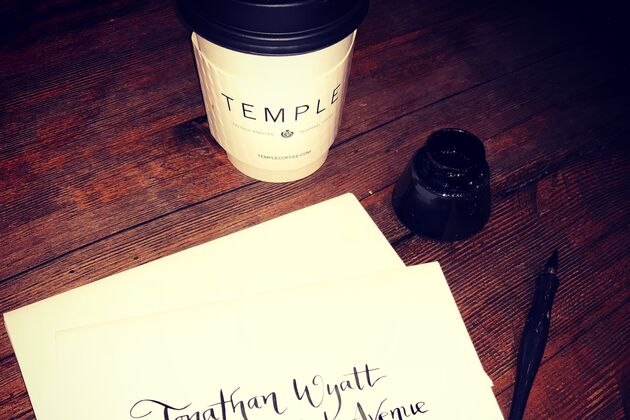 TEMPLE
TEMPLECOFFEE.COM
Jonathan Wyatt
Avenue